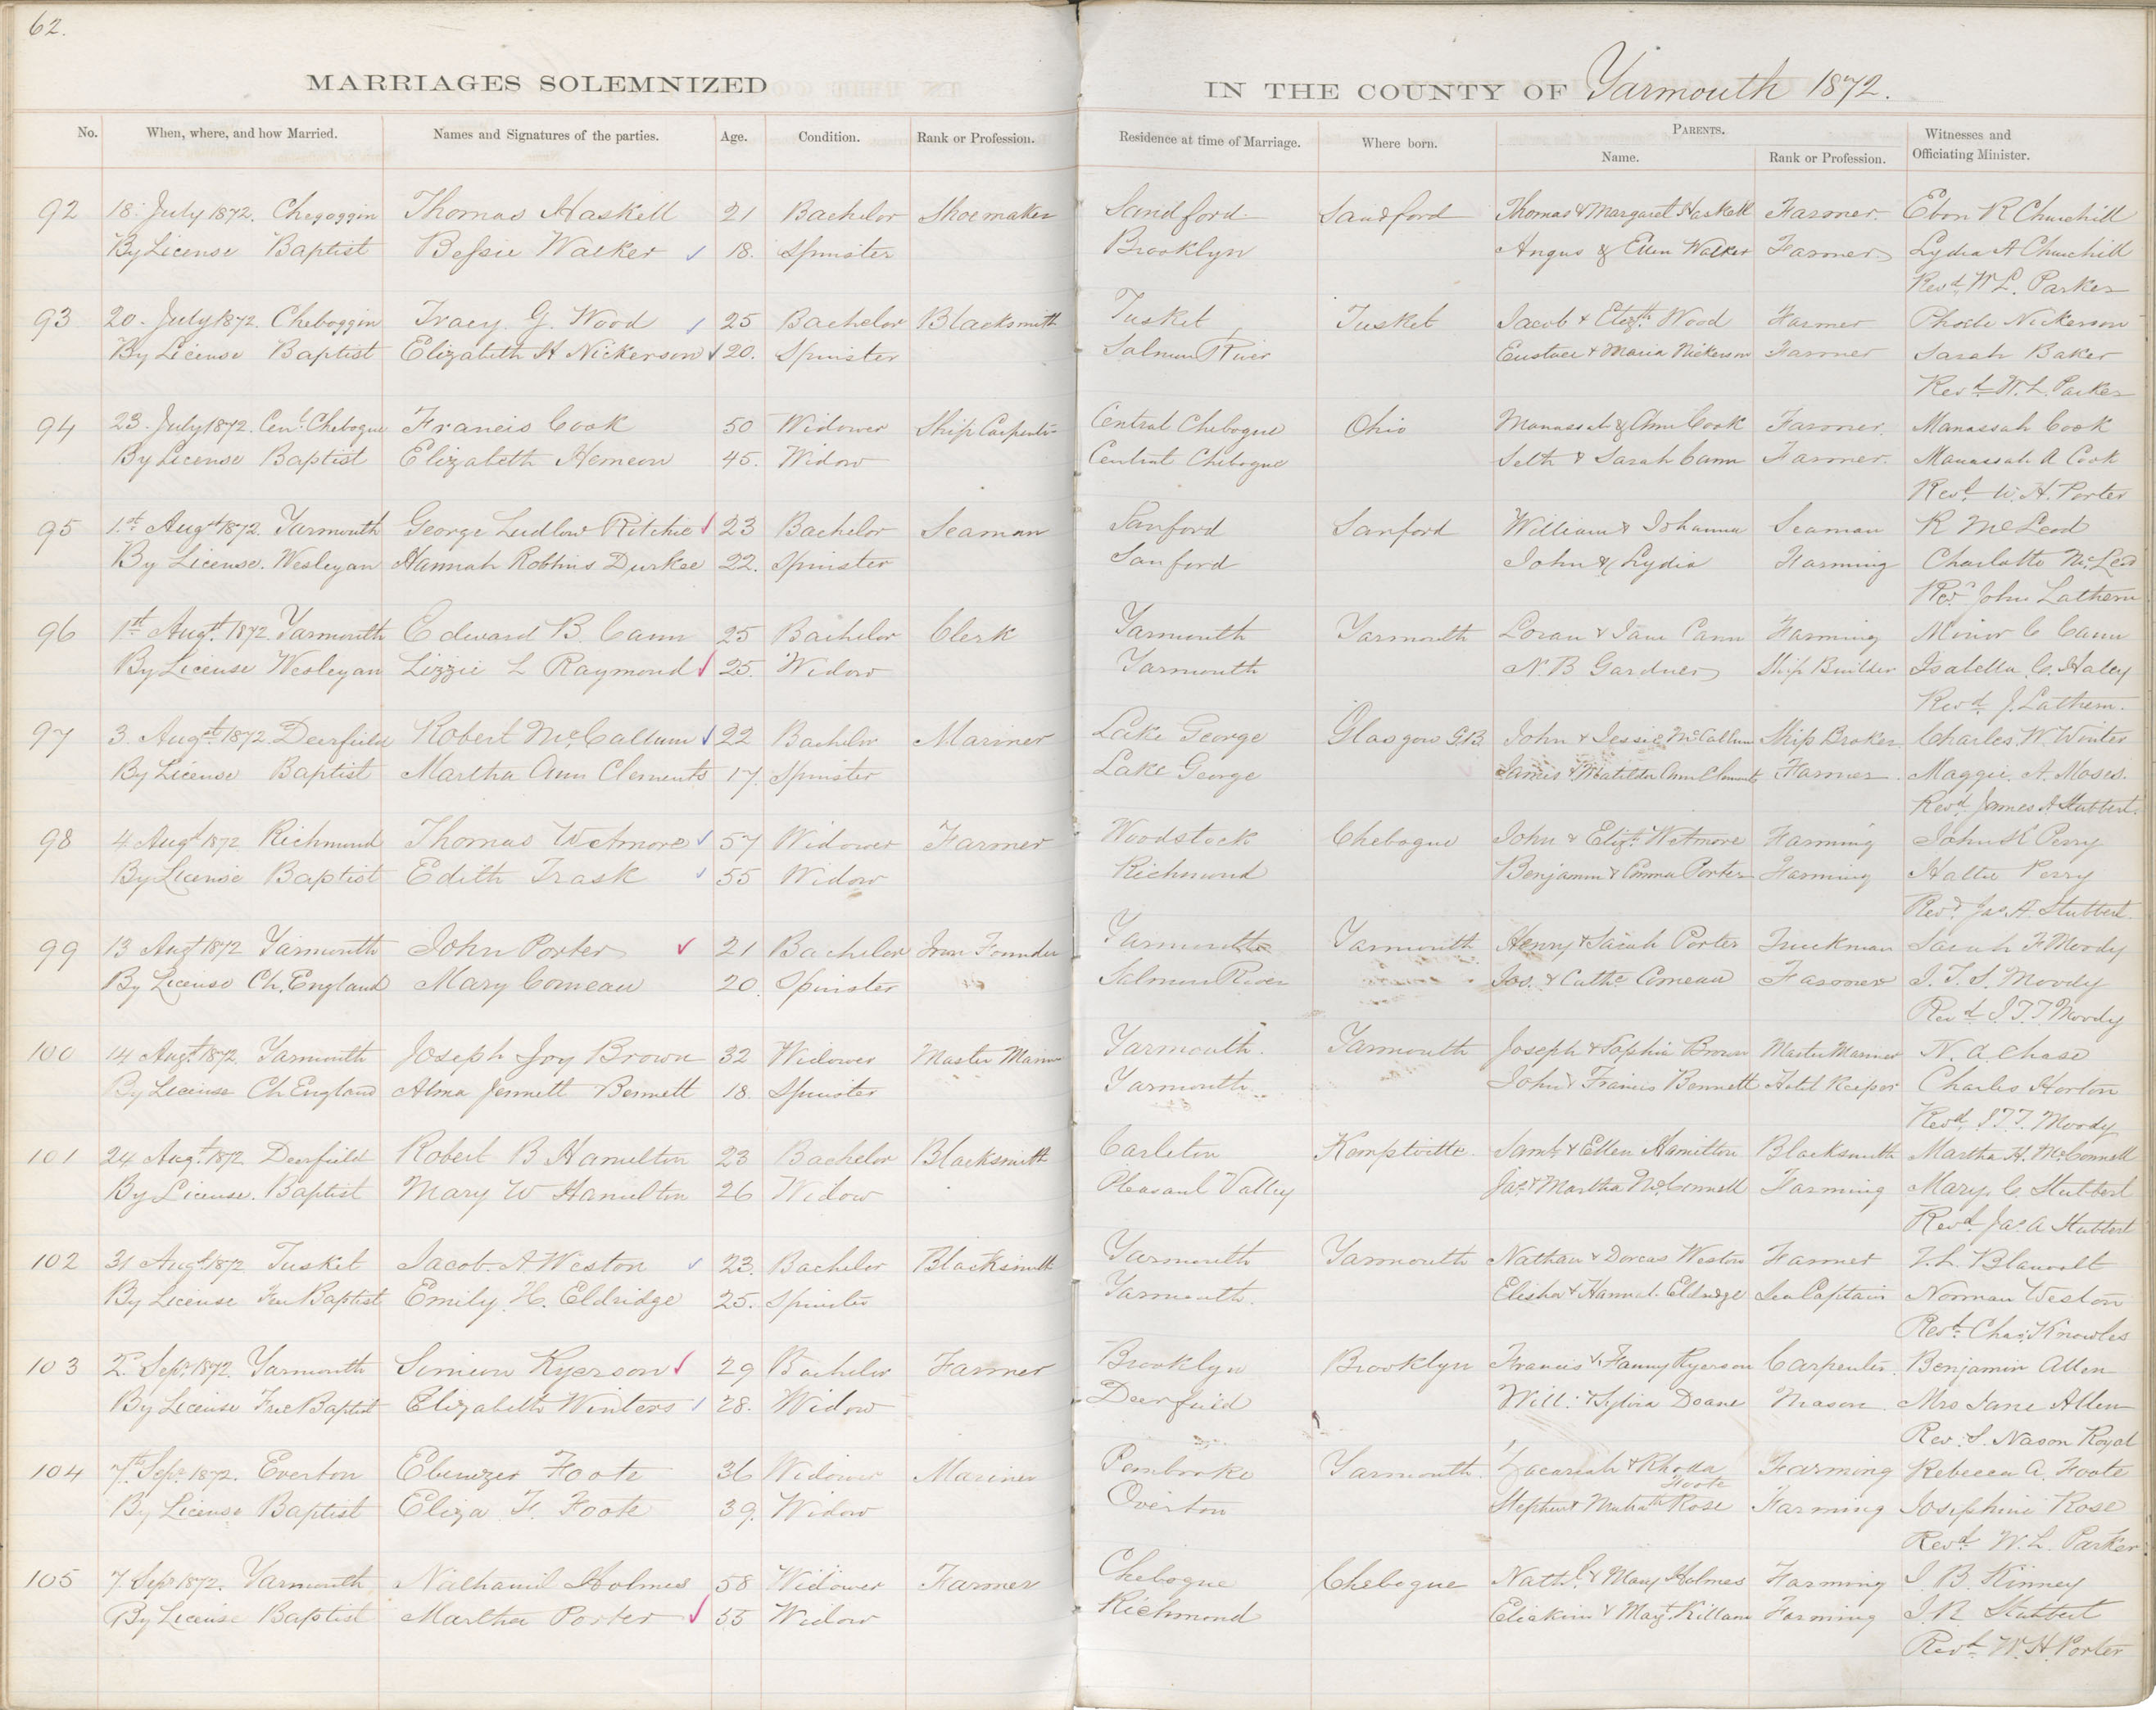 62.
MARRIAGES SOLEMNIZED IN THE COUNTY OF Yarmouth 1872.
No. When, where, and how Married. Names and Signatures of the parties. Age. Condition. Rank or Profession. Residence at time of Marriage. Where born. PARENTS. Name. Rank or Profession. Witnesses and Officiating Minister.
92 18. July 1872. Chegoggin Thomas Haskell 21 Bachelor Shoemaker Sandford Sandford Thomas & Margaret Haskell Farmer. Ebon R Churchill
By License Baptist Bessie Walker 18. Spinster Brooklyn Angus & Ellen Walker Farmer Lydia A Churchill
Revd. W. L. Parker
93 20. July 1872. Cheboggin Tracy G. Wood 25 Bachelor Blacksmith Tusket Tusket Jacob & Elizth. Wood Farmer Phoele Nickerson
By License Baptist Elizabeth H Nickerson 20. Spinster Salmon River & Maria Nickerson Farmer Sarah Baker
Revd. W. L. Parker
94 23. July 1872. Cenl. Chebogue Francis Cook 50 Widower Ship Carpenter Central Chebogue Ohio Manassah & Ann Cook Farmer. Manassah Cook
By License Baptist Elizabeth Hemeon 45. Widow Central Chebogue Selth & Sarah Cann Farmer. Manassah A Cook
Revd. W. H. Porter
95 1.st Augst 1872. Yarmouth George Ludlow Ritchie 23 Bachelor Seaman Sanford Sanford William & Johanna Seaman R McLeod
By License. Wesleyan Hannah Robbins Durkee 22. Spinster Sanford John & Lydia Farming Charlotte McLeod
Revd. John Lathern
96 1st Augt. 1872. Yarmouth Edward B. Cann 25 Bachelor Clerk Yarmouth Yarmouth Loran & Jane Cann Farming Minor C Cann
By License Wesleyan Lizzie L Raymond 25. Widow Yarmouth N. B Gardner Ship Builder Isabella C. Haley
Revd. J. Lathern.
97 3. Augst. 1872 Deerfield Robert McCallum 22 Bachelor Mariner Lake George Glasgow G.B. John & Jessie McCallum Ship Broker Charles W. Winter
By License Baptist Martha Ann Clements 17. Spinster Lake George James & Matilda Ann Clements Farmer. Maggie A. Moses.
Revd. James A Stubbert.
98 4 Augt 1872 Richmond Thomas Wetmore 57 Widower Farmer Woodstock Chebogue John & Elizth. Wetmore Farming John K Perry
By License Baptist Edith Trask 55 Widow Richmond Benjamin & Emma Porter Farming Hattie Perry
Revd. Jas A. Stubbert.
99 13 Augt 1872 Yarmouth John Porter 21 Bachelor Iron Founder Yarmouth Yarmouth Henry & Sarah Porter Truckman Sarah F Moody
By License Ch. England Mary Comeau 20. Spinster Salmon River Jos. & Cathe. Comeau Farmer J. T. T. Moody
Revd J. T. T Moody
100 14 Augt. 1872. Yarmouth Joseph Joy Brown 32 Widower Master Marin Yarmouth. Yarmouth Joseph & Sophia Brown Master Mariner N. A. Chase
By License Ch England Alma Jennett Bennett 18. Spinster Yarmouth. John & Francis Bennett Hotel Keeper Charles Horton
Revd. J T T. Moody
101 24 Augt. 1872 Deerfield Robert B Hamilton 23 Bachelor Blacksmith Carleton Kemptville. Saml. & Ellen Hamilton Blacksmith Martha H. McConnell
By License. Baptist Mary W Hamilton 26 Widow Pleasant Valley Jas. & Martha McConnell Farming Mary C. Stubbert
Revd. Jas A Stubbert
102 31 Augt. 1872 Tusket Jacob. A Weston 23. Bachelor Blacksmith Yarmouth Yarmouth Nathan & Dorcas Weston Farmer J. L. Blauvelt
By License Free Baptist Emily. H. Eldridge 25. Spinster Yarmouth. Elisha & Hannah Eldridge Sea Captain Norman Weston
Revd. Chas. Knowles
103 2d Sepr. 1872. Yarmouth Simeon Ryerson 29 Bachelor Farmer Brooklyn Brooklyn Francis & Fanny Ryerson Carpenter. Benjamin Allen
By License Free Baptist Elizabeth Winters 28. Widow Deerfield Will. & Sylvia Doane Mason Mrs Jane Allen
Rev. S. Nason Royal
104 7th Sepr. 1872. Everton Ebenezer Foote 36 Widower Mariner Pembroke Yarmouth. Zacariah & Rhoda Foote Farming Rebecca A. Foote
By License Baptist Eliza F. Foote 39. Widow Overton Stephen & Rose Farming Josephine Rose
Revd. W. L. Parker
105 7. Sepr 1872. Yarmouth Nathaniel Holmes 58 Widower Farmer Chebogue Chebogue Nathl. & Mary Holmes Farming J. B. Kinney
By License Baptist Martha Porter 55 Widow Richmond Eliakim & Magt. Killam Farming J. R Stubbert
Revd. W. H. Porter